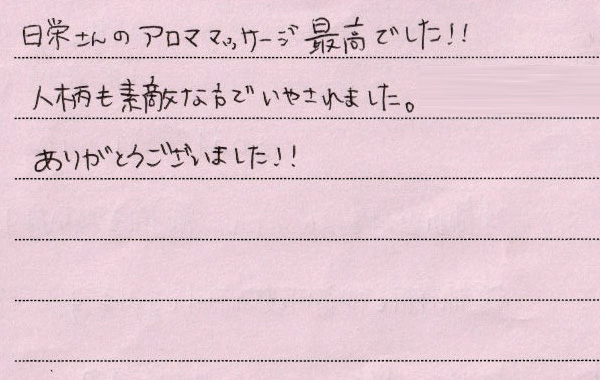 日栄さんのアロママッサージ最高でした!!
人柄も素敵な方でいやされました。
ありがとうございました!!